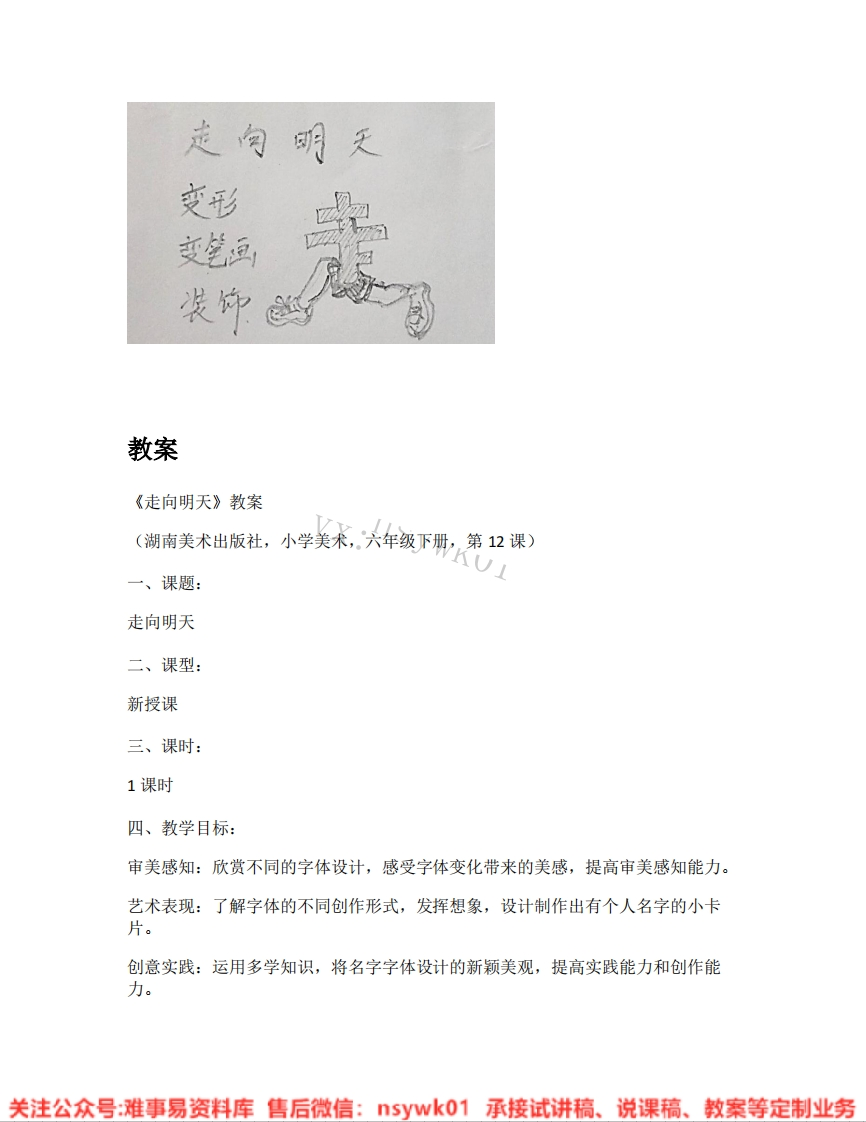 走向明天
变形
变笔画
装饰
走
教案
《走向明天》教案
（湖南美术出版社，小学美术，六年级下册，第 12 课）
一、课题：
走向明天
二、课型：
新授课
三、课时：
1 课时
四、教学目标：
审美感知：欣赏不同的字体设计，感受字体变化带来的美感，提高审美感知能力。
艺术表现：了解字体的不同创作形式，发挥想象，设计制作出有个人名字的小卡
片。
创意实践：运用多学知识，将名字字体设计的新颖美观，提高实践能力和创作能
力。
关注公众号:难事易资料库 售后微信：nsywk01 承接试讲稿、说课稿、教案等定制业务